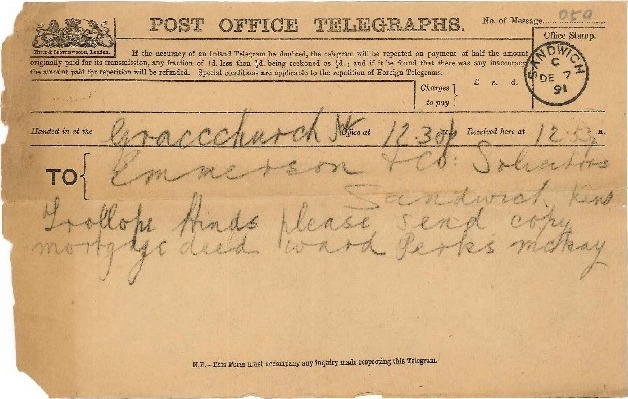 POST OFFICE TELEGRAPHS.
No. of Message
If the accuracy of an Inland Telegram be doubted, the telegram will be repeated on payment of half the amount
originally paid for its transmission, any fraction of 1d. less than ½d. being reckoned as ½d.; and if it be found that there was any inaccuracy
the amount paid for repetition will be refunded. Special conditions are applicable to the repetition of Foreign Telegrams.
Office Stamp.
SANDWICH
C
DE 7
91
Charges
to pay
£ s. d.
Handed in at the Gracechurch St Office at 12.30 Received here at 12.53
TO Emmerson & Co: Solicitors
Sandwich Kent
Trollope Hinds please send copy
mortgage deed ward Perks mckay
N.B.—This Form must accompany any inquiry made respecting this Telegram.